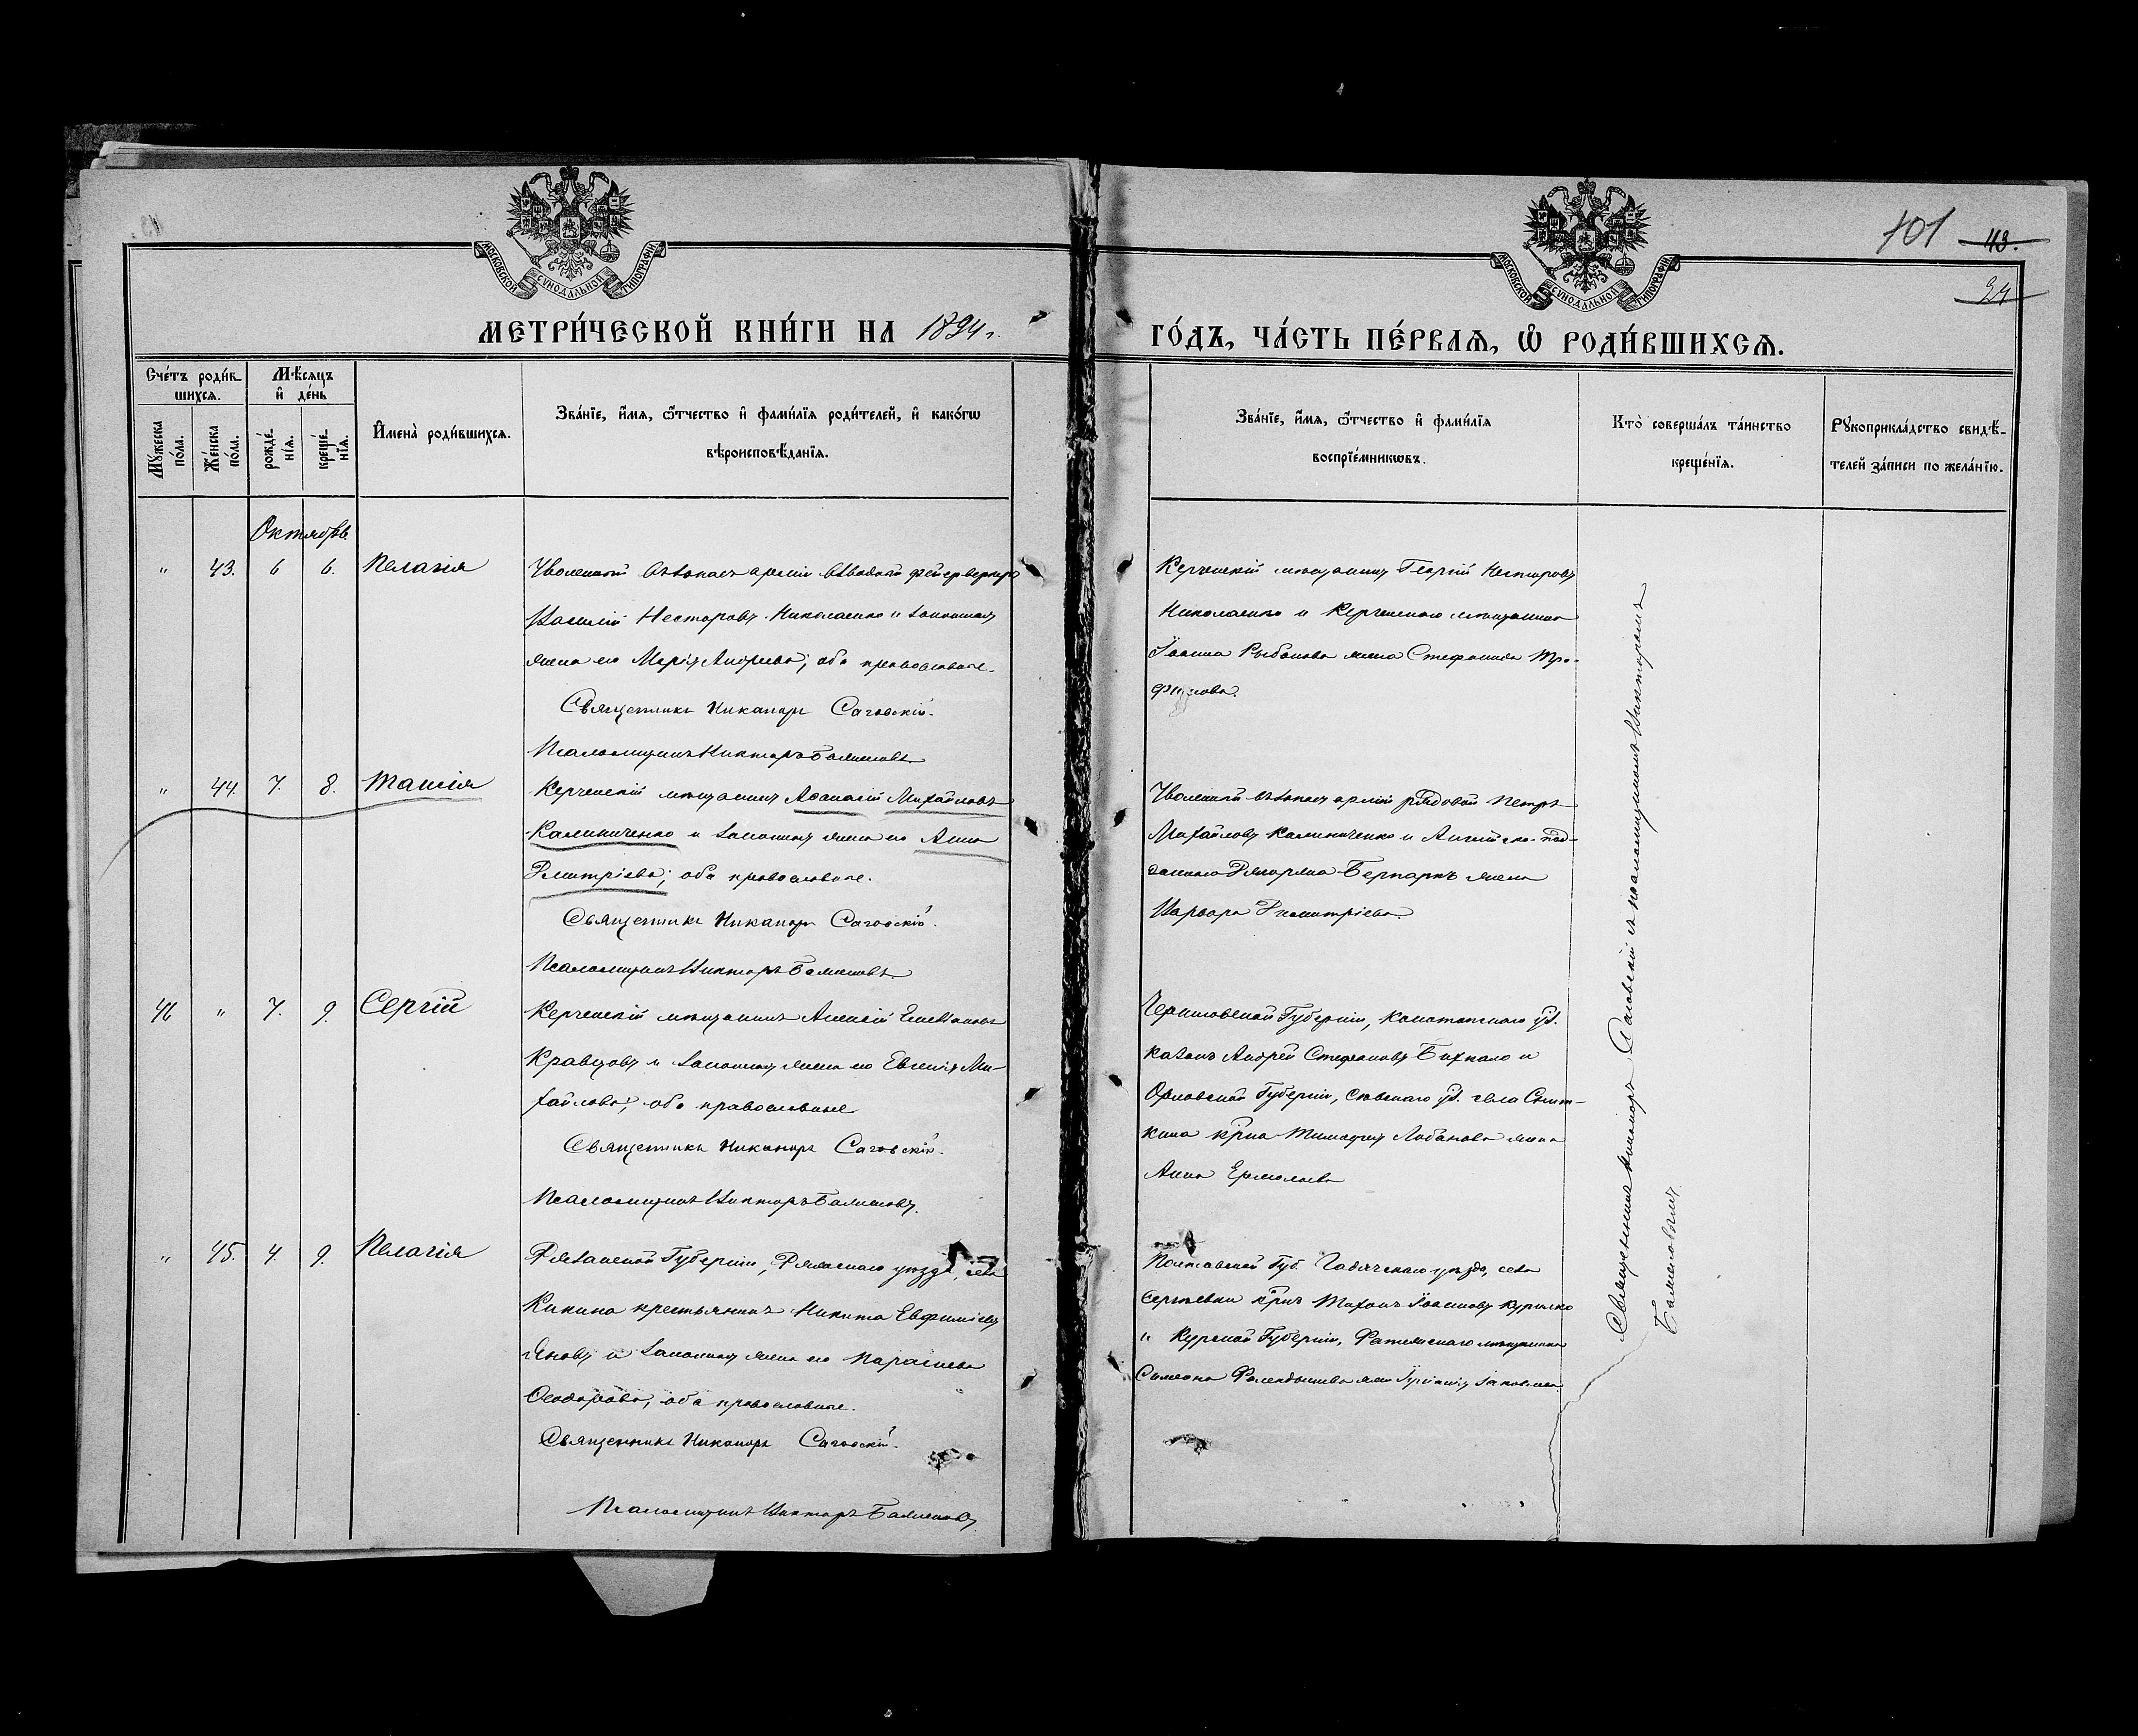 МОСКОВСКОЙ СѴНОДАЛЬНОЙ ТИПОГРАФІИ
МОСКОВСКОЙ СѴНОДАЛЬНОЙ ТИПОГРАФІИ
101 43.
24
МЕТРИ́ЧЕСКОЙ КНИ́ГИ НА 1894 г.
ГО́ДЪ, ЧА́СТЬ ПЕ́РВАЯ, Ѡ҆ РОДИ́ВШИХСЯ.
Сче́тъ роди́в-
шихся.
Мѣ́сяцъ
и҆ де́нь
Му́жеска по́ла.
Же́нска по́ла.
рожде́-
нїя.
креще́-
нїя.
И҆мена̀ роди́вшихся.
Зва́нїе, и҆́мя, ѻ҆́тчество и҆ фами́лїя роди́телей, и҆ како́гѡ
вѣроисповѣ́данїя.
Зва́нїе, и҆́мя, ѻ҆́тчество и҆ фами́лїя
воспрїе́мникѡвъ.
Кто̀ соверша́лъ та́инство
креще́нїя.
Рꙋкоприкла́дство свидѣ́-
телей за́писи по жела́нїю.
Октябрь
" 43. 6 6. Пелагія
Уволенный въ запасъ арміи взводный фейерверкеръ
Василій Несторовъ Николаенко и законная
жена его Марія Андреева; оба православные.
Священникъ Никаноръ Саговскій.
Псаломщикъ Викторъ Баженовъ
Керченскій мѣщанинъ Георгій Несторовъ
Николаенко и Керченского мѣщанина
Іоанна Рыбакова жена Стефанида Тро-
фимова.
" 44. 7. 8. Таисія
Керченскій мѣщанинъ Аѳанасій Михайловъ
Калиниченко и законная жена его Анна
Димитріева; оба православные.
Священникъ Никаноръ Саговскій.
Псаломщикъ Викторъ Баженовъ
Уволенный въ запасъ арміи рядовой Петръ
Михайловъ Калиниченко и Англійско-под-
даннаго Бернаръ жена
Варвара Димитріева.
46 " 7. 9. Сергій
Керченскій мѣщанинъ Алексій
Кравцовъ и законная жена его Евгенія Ми-
хайлова; оба православные
Священникъ Никаноръ Саговскій.
Псаломщикъ Викторъ Баженовъ.
Черниговской Губерніи, Конотопскаго уѣ.
казакъ Андрей Стефановъ Бихкало и
Орловской Губерніи, Сѣвскаго уѣ. села
кр-на Тимоѳея Лобанова жена
Анна Ермолаева
" 45. 4. 9. Пелагія
Рязанской Губерніи, Ряжскаго уѣзда, села
Кикина крестьянинъ Никита Евфиміевъ
Яновъ и законная жена его Параскева
Ѳеодорова; оба православные.
Священникъ Никаноръ Саговскій.
Псаломщикъ Викторъ Баженовъ
Полтавской Губ. Гадячскаго уѣзда, села
Сергѣевки кр-нъ Тихонъ Іоанновъ Курилко
и Курской Губерніи, Фатежскаго мѣщанина
Симеона жена Іаковлева.
Священникъ Никаноръ Саговскій съ псаломщикомъ Викторомъ
Баженовымъ